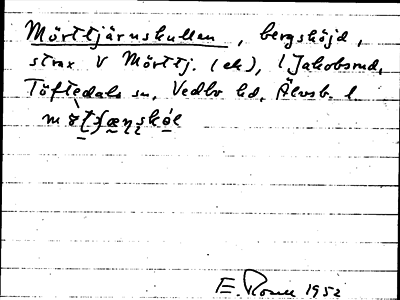 Mörttjärnskullen, bergshöjd,
strax V Mörttj. (ek), i Jakobsrud,
Töftedals sn, Vedbo hd, Älvsb. l.
E. Rosell 1952